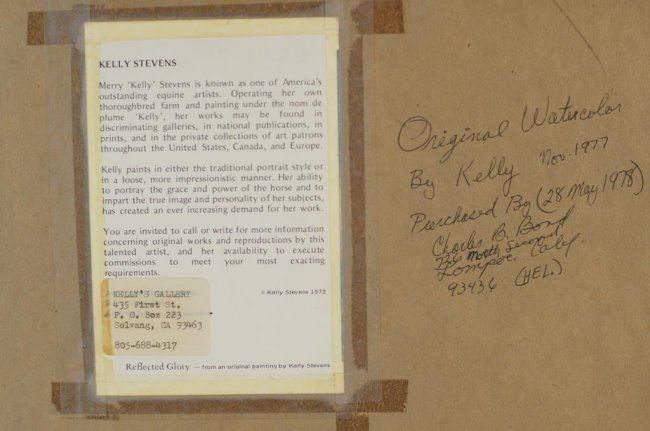 KELLY STEVENS
Merry 'Kelly' Stevens is known as one of America's
outstanding equine artists. Operating her own
thoroughbred farm and painting under the nom de
plume 'Kelly', her works may be found in
discriminating galleries, in national publications, in
prints, and in the private collections of art patrons
throughout the United States, Canada, and Europe.
Kelly paints in either the traditional portrait style or
in a loose, more impressionistic manner. Her ability
to portray the grace and power of the horse and to
impart the true image and personality of her subjects,
has created an ever increasing demand for her work.
You are invited to call or write for more information
concerning original works and reproductions by this
talented artist, and her availability to execute
commissions to meet your most exacting
requirements.
© Kelly Stevens 1972
KELLY'S GALLERY
435 First St.
P. O. Box 223
Solvang, CA 93463
805-688-4317
Reflected Glory — from an original painting by Kelly Stevens
Original Watercolor
By Kelly Nov. 1977
Purchased By (28 May 1978)
Charles B. Bond
North Second
Lompoc. Calif.
93436 (HEL.)